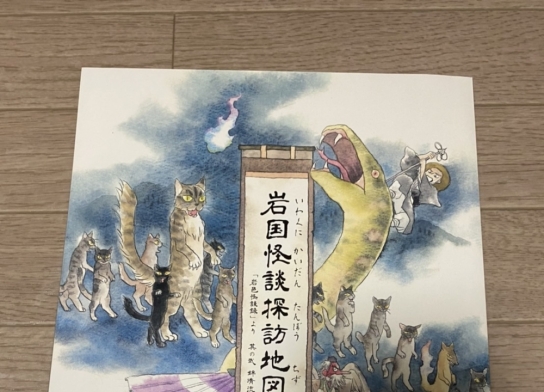 岩国怪談探訪地図
いわくに かいだん たんぼう ちず
「岩邑怪談録」より 其の弐 錦清流